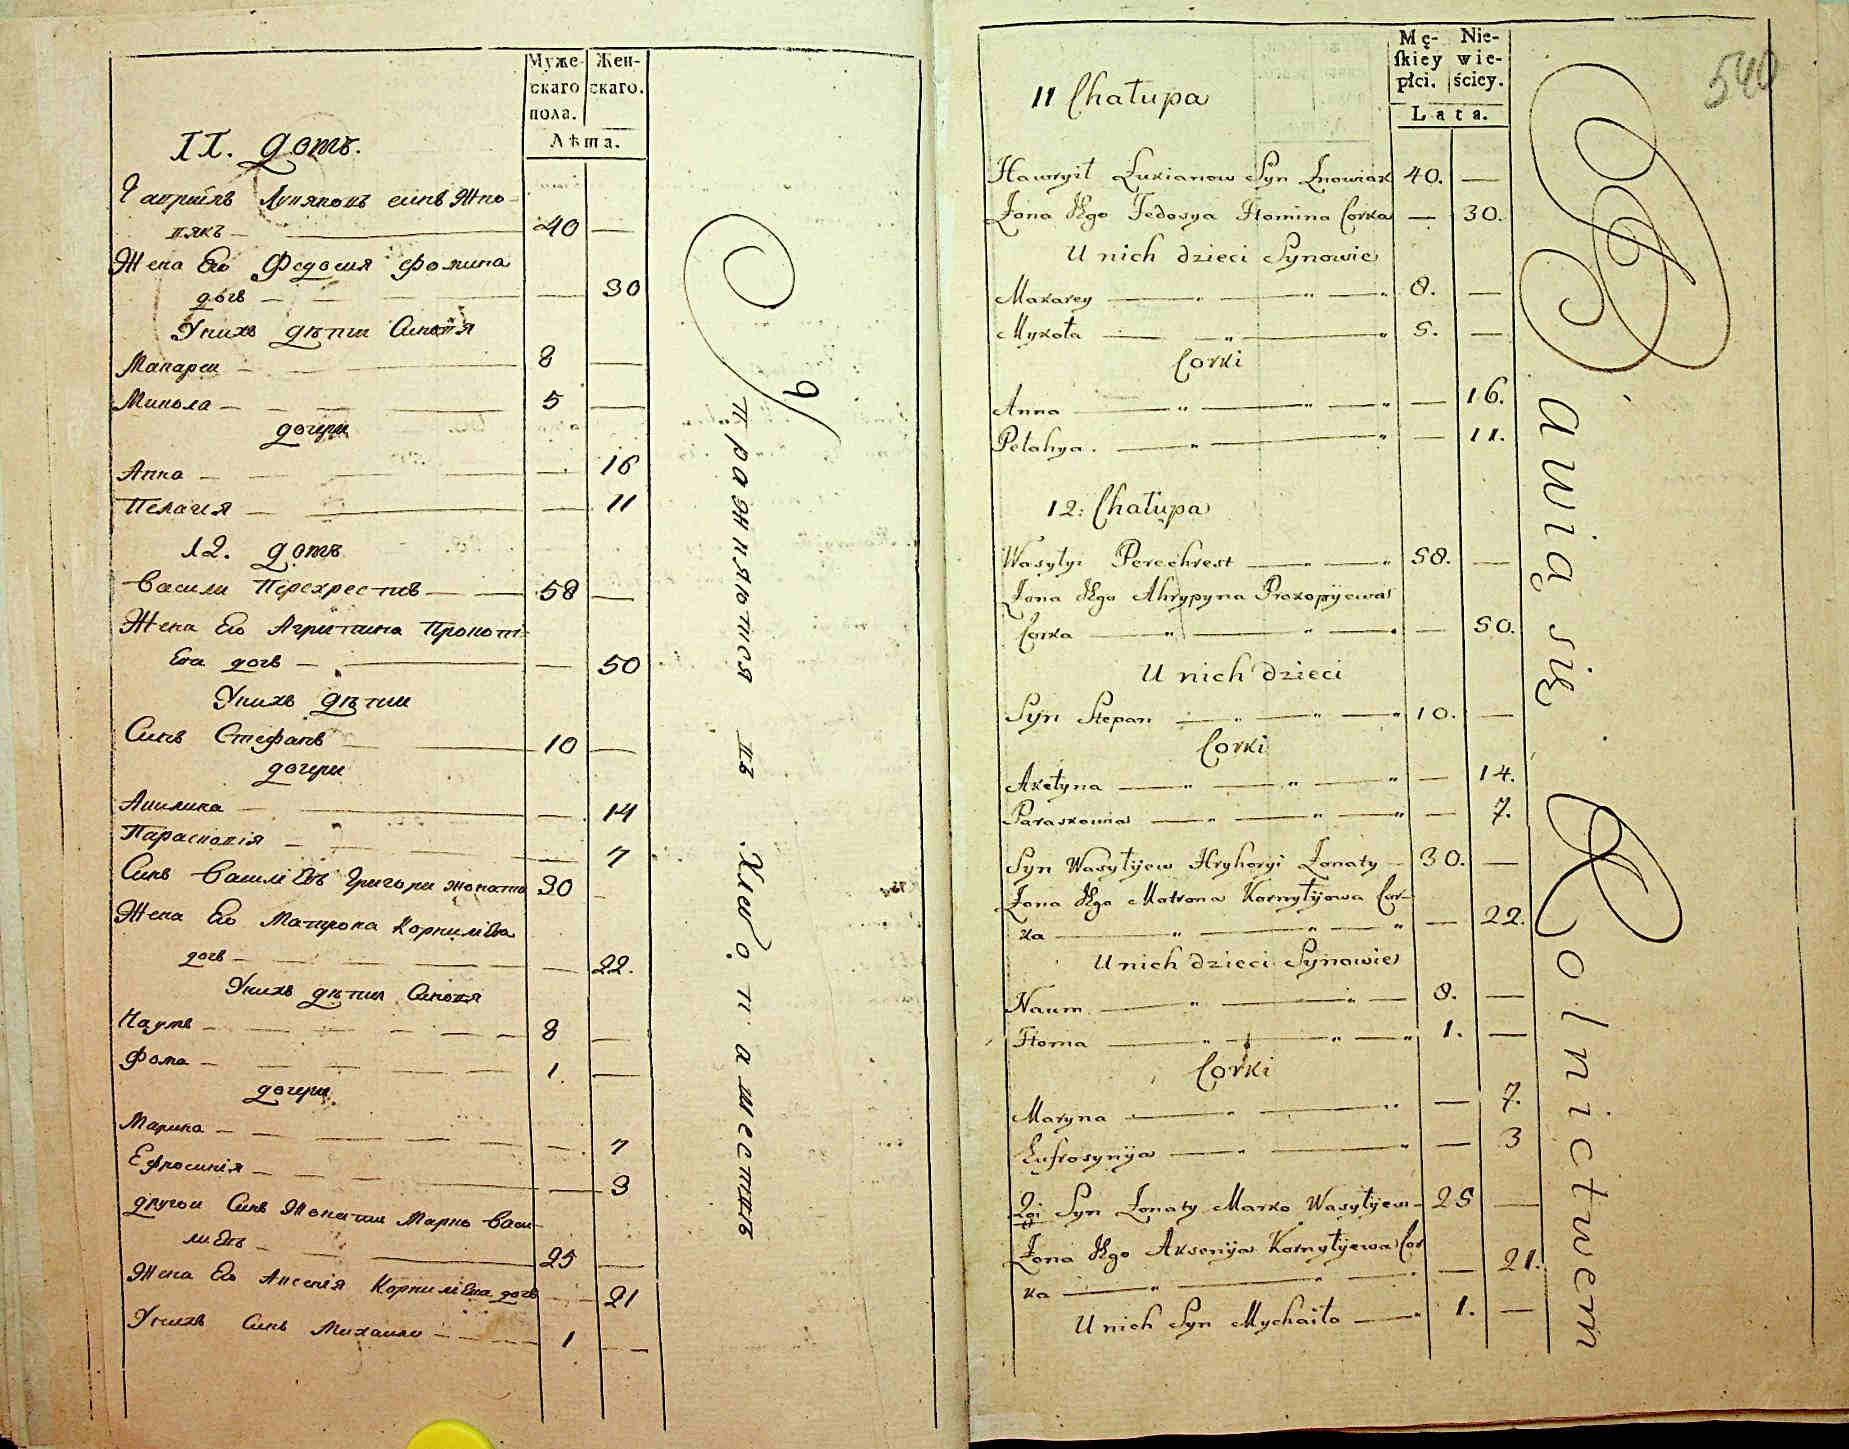 Муже-
скаго
пола.
Жен-
скаго.
Лѣта.
II. домъ.
Гаврыилъ Лукяновъ синъ Жно-
вякъ — 40 —
Жена Его Федосия Фомина
дочъ — — 30
Унихъ дѣтии Синовя
Макареи — 8 —
Микола — 5 —
дочери
Анна — — 16
Пелагия — — 11
12. домъ
Васили Перехрестъ — 58 —
Жена Его Агрипина Прокопі-
Ева дочъ — — 50
Унихъ дѣтии
Синъ Стефанъ — 10 —
дочери
Акилина — — 14
Парасковія — — 7
Синъ Василіевъ Григори жонати 30 -
Жена Его Матрона Корниліева
дочъ — — 22.
Унихъ дѣтии Синовя
Наумъ — 8 —
Фома — 1. —
дочери
Марина — — 7
Ефросинія — — 3
другои Синъ Жонатии Марко Васи-
лиевъ — 25 —
Жена Его Аксенія Корниліева дочъ — 21
Унихъ Синъ Михаило — 1 —
Упражняются въ Хлебопашествѣ
540
Mę-
skiey
płci.
Nie-
wie-
ściey.
Lata.
11 Chałupa
Hawryił Łukianow Syn Żnowiak 40. —
Żona Jego Fedosya Homina Corka — 30.
U nich dzieci Synowie
Makarey — 8. —
Mykoła — 5. —
Corki
Anna — — 16.
Pełahya. — — 11.
12: Chałupa
Wasylyi Perechrest — 58. —
Żona Jego Ahrypyna Prokopyjewa
Corka — — 50.
U nich dzieci
Syn Stepan — 10. —
Corki
Akełyna — — 14.
Paraskowia — — 7.
Syn Wasylyjew Hryhoryi Żonaty — 30. —
Żona Jego Motrona Kornyłyjowa Cor-
ka — — 22.
U nich dzieci Synowie
Naum — 8. —
Homa — 1. —
Corki
Maryna — — 7.
Eufrosynija — — 3
2gi Syn Żonaty Marko Wasyłyjew - 25 —
Żona Jego Aksenija Kornyłyjewa Cor
ka — — 21.
U nich Syn Mychaiło — 1. —
Bawią się Rolnictwem